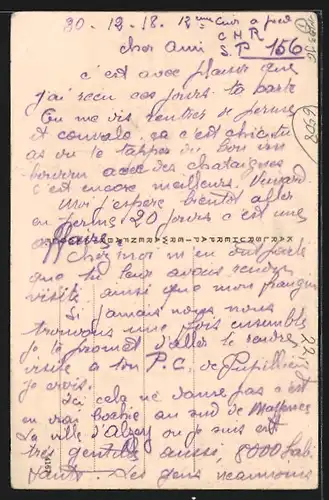 20-12-18. 12eme Cuir à pied
C H R
S. P. 156
Cher Ami
C'est avec plaisir que
j'ai reçu ces jours ta carte
Tu me dis rentrer de perme
et convalo. ça c'est chic tu
as du te tapper du bon vin
nouveau avec des chataignes
c'est encore meilleurs.
Moi j'espère bientôt aller
en perme 20 jours c'est une
affaire
Chez moi m'en ont parlé
que tu leur avais rendu
visite ainsi que mon frangin
Si jamais nous nous
trouvons une fois ensemble
je te promet d'aller te rendre
visite à ton P.C. de
je crois.
Ici cela ne danse pas c'est
en vrai boche au sud de Mayence
La ville d'Alzey ou je suis est
très gentille aussi, 8000 hab
Les gens